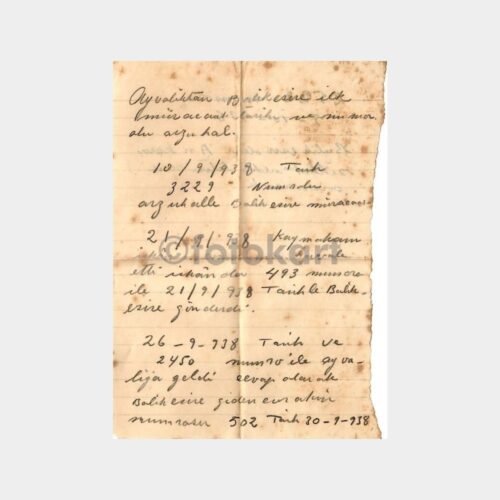 Ayvalıktan Balıkesire ilk
müracaat tarihi ve numor
alu arzuhal.
10/9/938 Tarih
3229 Numrolu
arzuhalle Balıkesire müracaat
21/9/938 Kaymakam
etti iskânda 493 numoro
ile 21/9/938 Tarihle Balık
esire gönderdi.
26-9-938 Tarih ve
2450 numro ile ayva
lıja geldi cevap olarak
Balıkesire giden evrakın
numrosu 502 Tarih 30-9-938
©fotokart